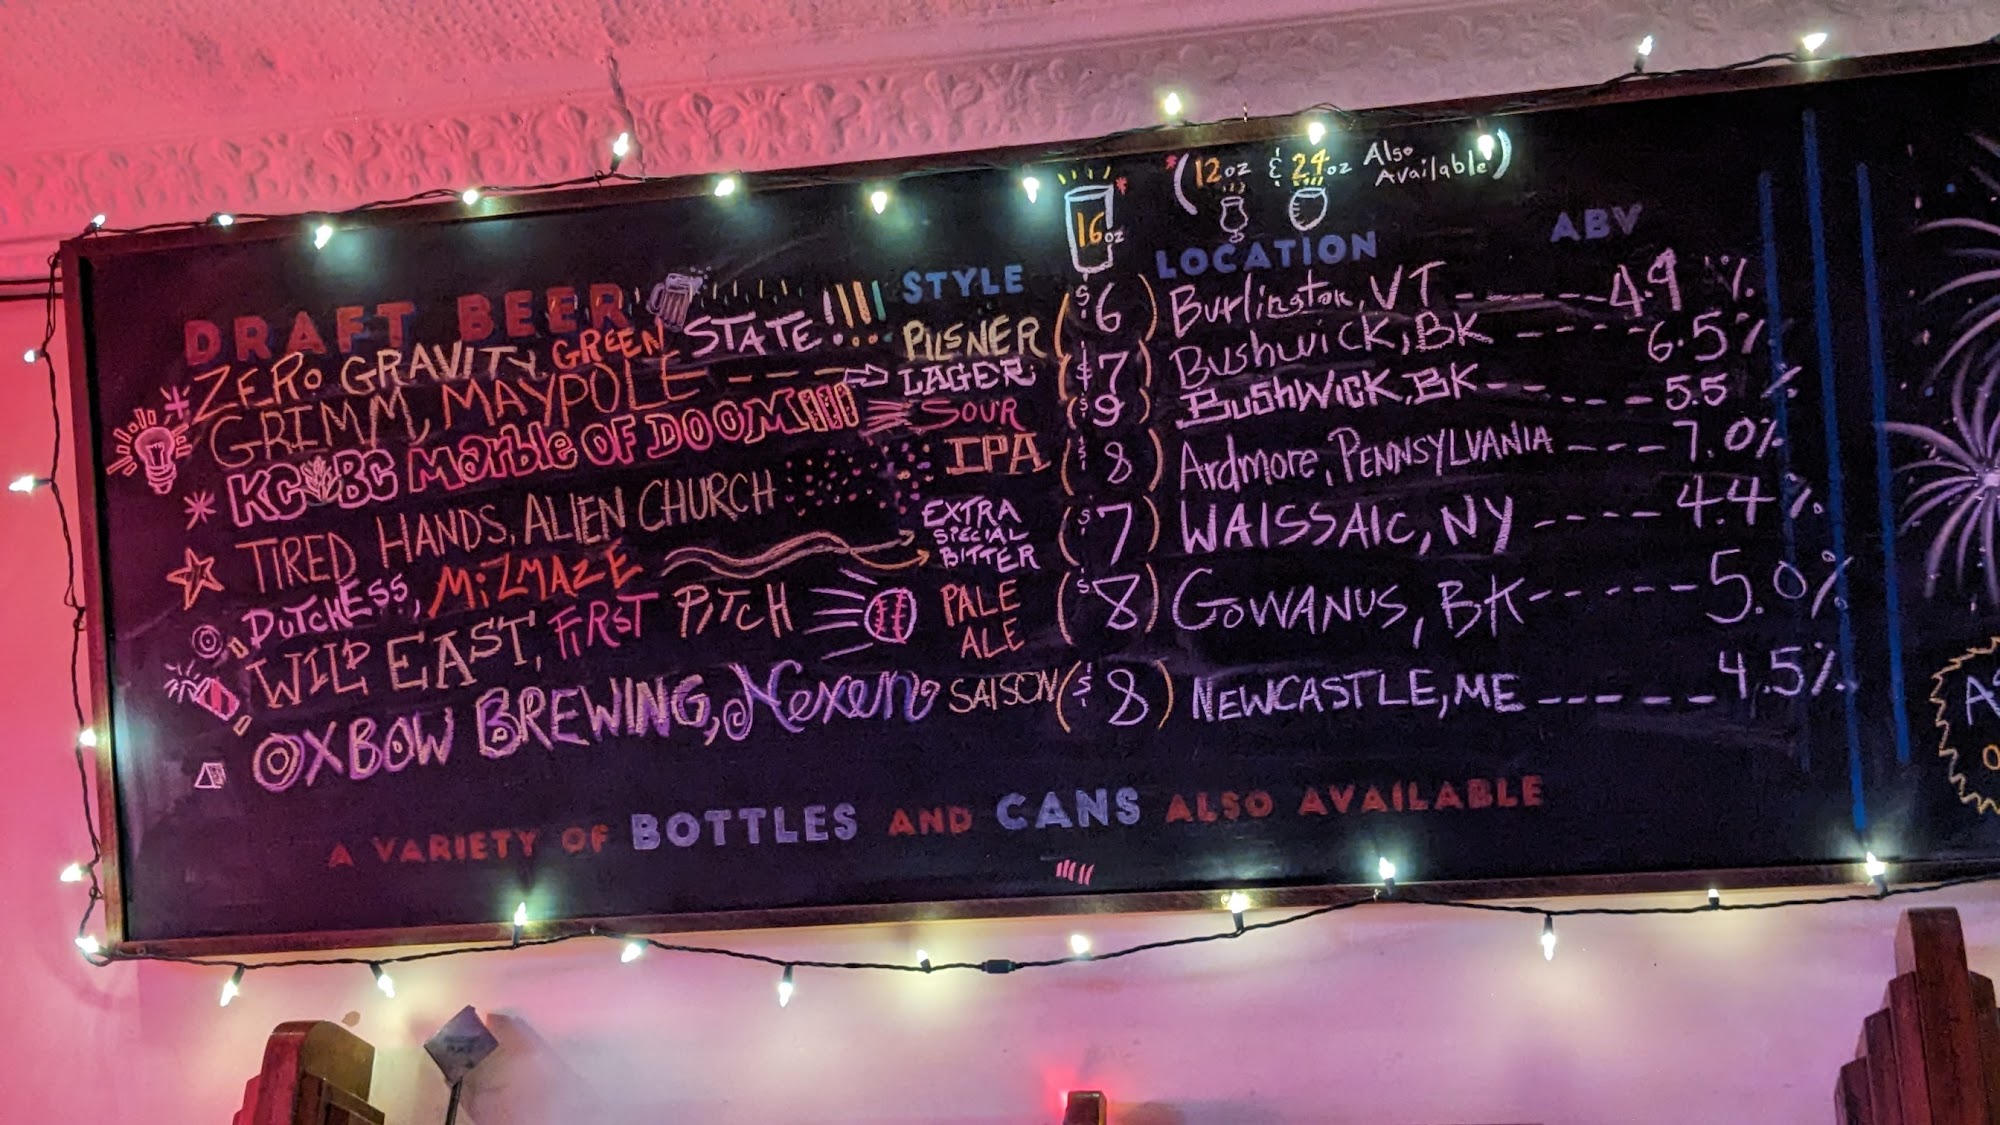 *(12oz & 24oz Also Available)
16oz*
DRAFT BEER STYLE LOCATION ABV
ZERO GRAVITY GREEN STATE!!!! PILSNER ($6) Burlington, VT ------ 4.9%
GRIMM, MAYPOLE --- LAGER ($7) Bushwick, BK ---- 6.5%
KCBC Marble OF DOOM!!! SOUR ($9) BUSHWICK, BK ----- 5.5%
TIRED HANDS, ALIEN CHURCH IPA ($8) Ardmore, PENNSYLVANIA --- 7.0%
DUTCHESS, MIZMAZE EXTRA SPECIAL BITTER ($7) WAISSAIC, NY ---- 4.4%
WILD EAST, FIRST PITCH PALE ALE ($8) GOWANUS, BK ------ 5.0%
OXBOW BREWING, Nexen SAISON ($8) NEWCASTLE, ME ------ 4.5%
A VARIETY OF BOTTLES AND CANS ALSO AVAILABLE